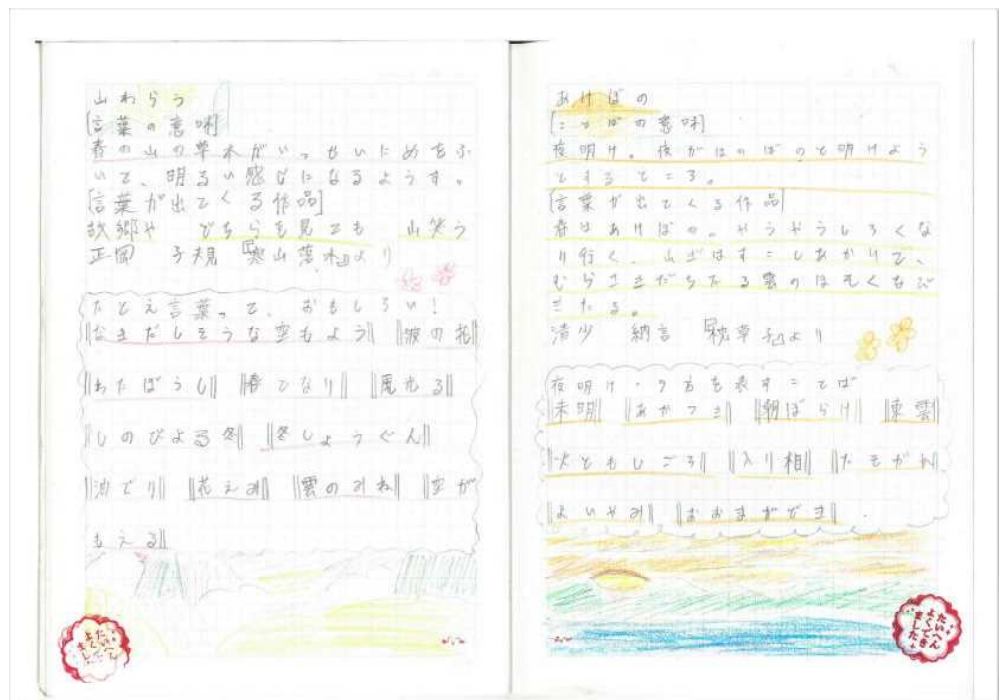 山わらう
[言葉の意味]
春の山の草木がいっせいにめをふ
いて、明るい感じになるようす。
[言葉が出てくる作品]
故郷や どちらを見ても 山笑う
正岡 子規 『寒山落木』より
たとえ言葉って、おもしろい!
なきだしそうな空もよう 波の花
わたぼうし 春となり 風光る
しのびよる冬 冬しょうぐん
油でり 花えみ 雲のみね 空が
もえる
たいへん
よくでき
ました
あけぼの
[ことばの意味]
夜明け。夜がほのぼのと明けよう
とするところ。
[言葉が出てくる作品]
春はあけぼの。やうやうしろくな
り行く、山ぎはすこしあかりて、
むらさきだちたる雲のほそくたなび
きたる。
清少 納言 『枕草子』より
夜明け・夕方を表すことば
未明 あかつき 朝ぼらけ 東雲
火ともしごろ 入り相 たそがれ
よいやみ おおまがどき
たいへん
よくでき
ました